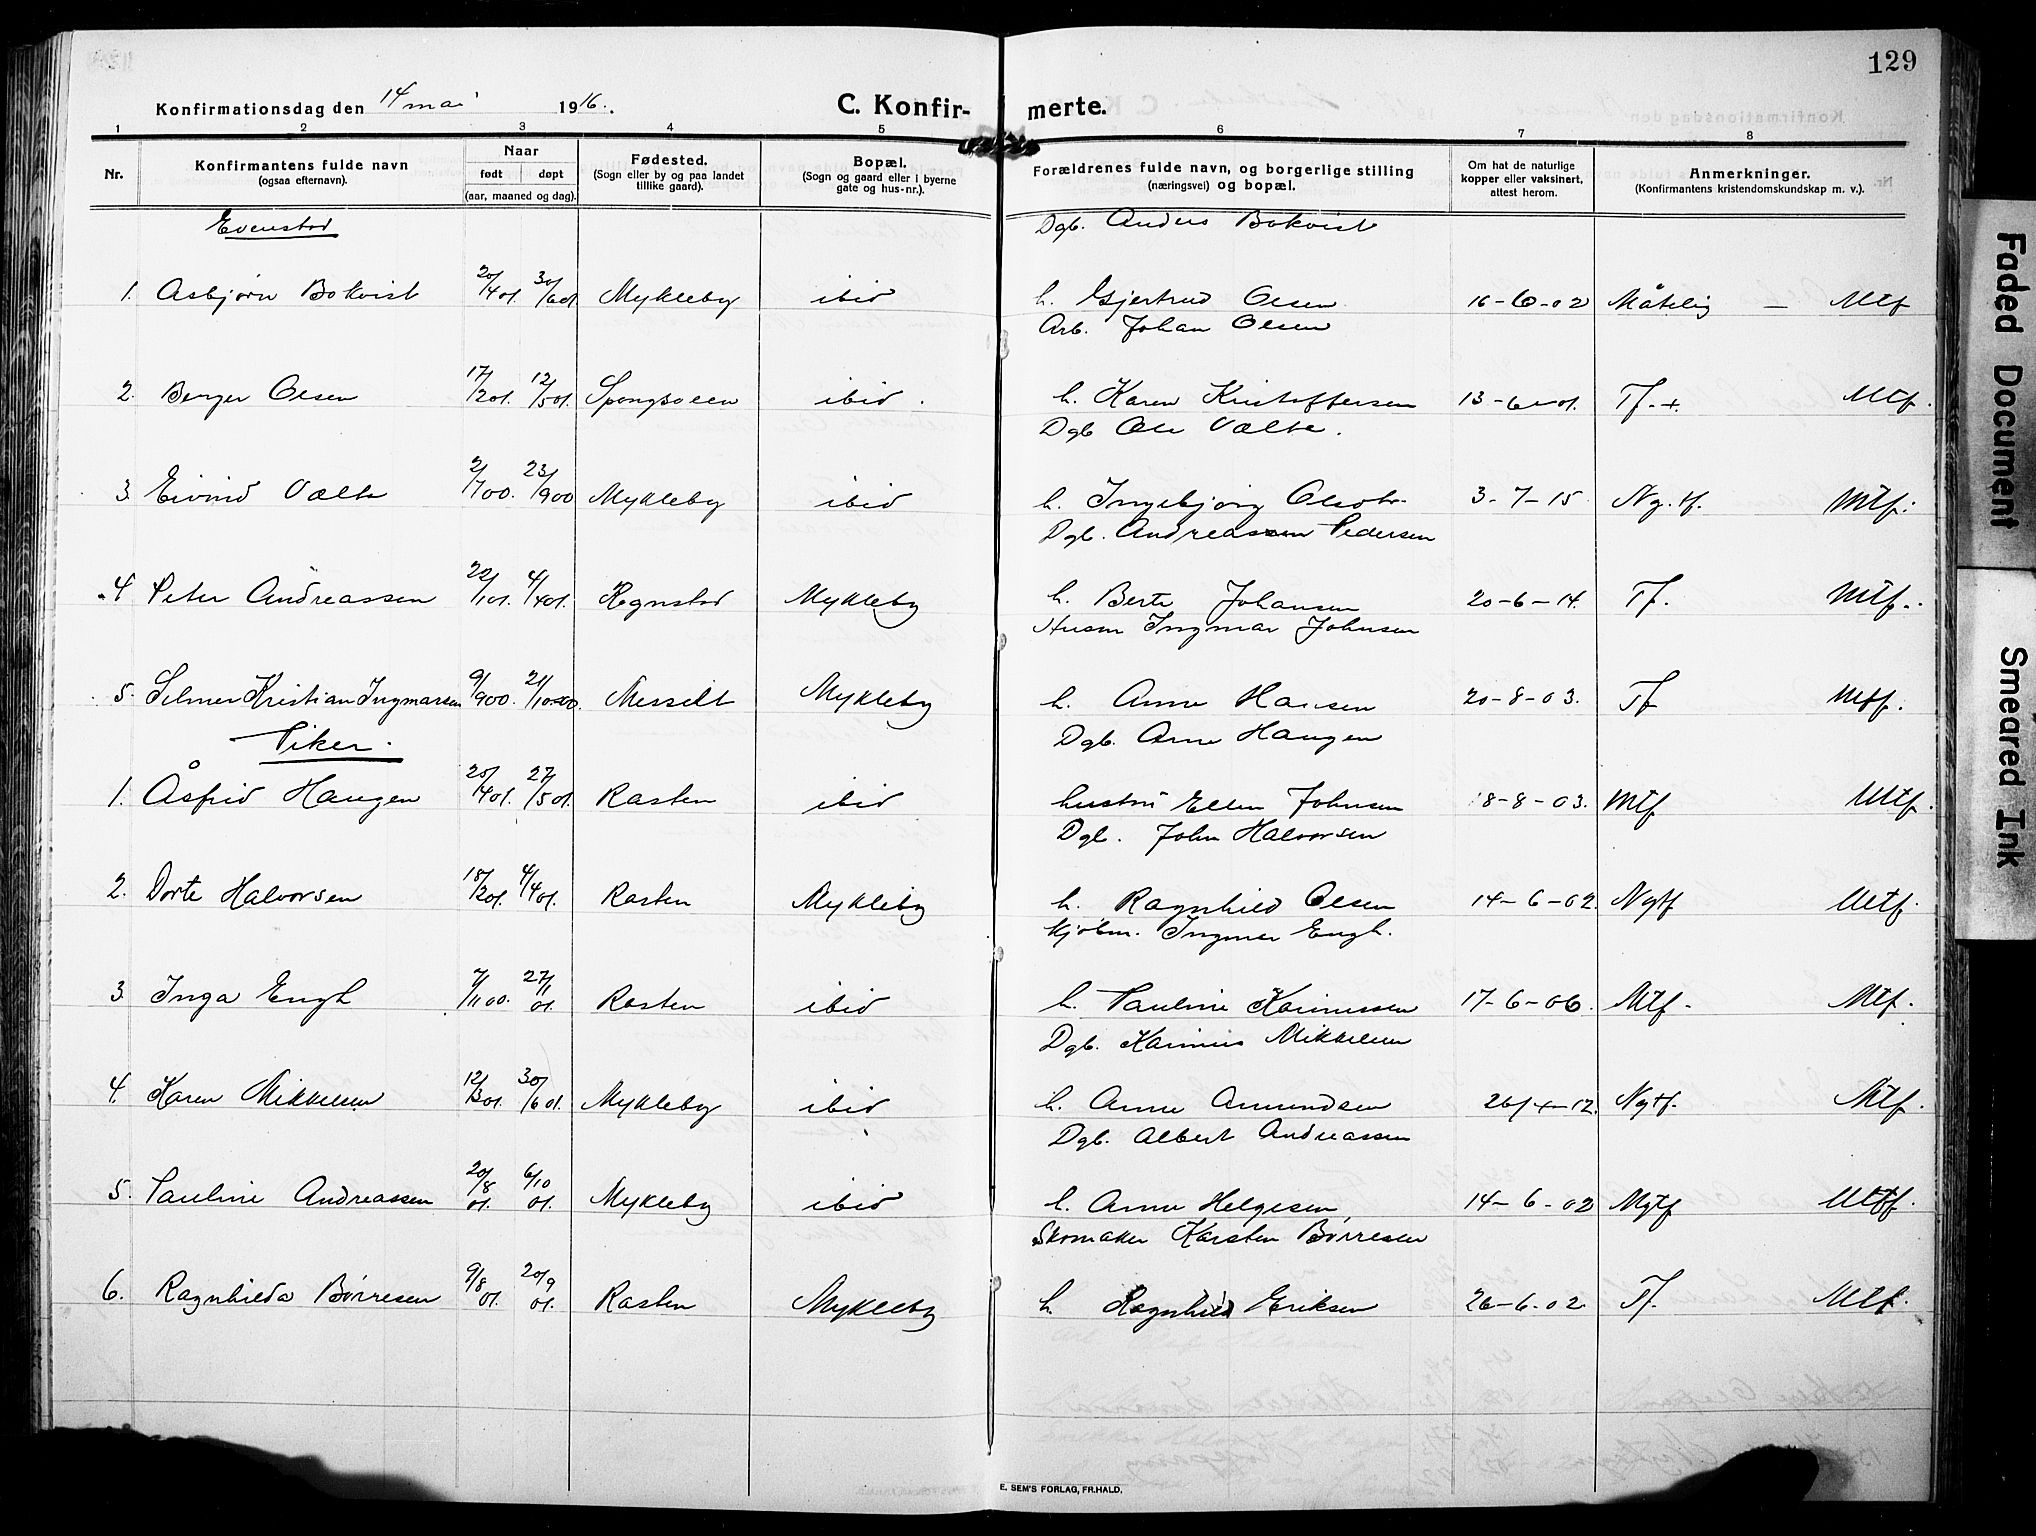 129
Konfirmationsdag den 14 mai 1916.
C. Konfir- merte.
1 2 3 4 5 6 7 8
Nr.
Konfirmantens fulde navn
(ogsaa efternavn).
Naar
født døpt
(aar, maaned og dag).
Fødested.
(Sogn eller by og paa landet
tillike gaard).
Bopæl.
(Sogn og gaard eller i byerne
gate og hus-nr.).
Forældrenes fulde navn, og borgerlige stilling
(næringsvei) og bopæl.
Om hat de naturlige
kopper eller vaksinert,
attest herom.
Anmerkninger.
(Konfirmantens kristendomskundskap m. v.).
Evenstad
Dgb. Anders Bokvist
1. Asbjørn Bokvist 20/4 01. 30/6 01. Mykleby ibid h. Gjertrud Olsen 16-6-02 Måtelig — Mtf
Arb. Johan Olsen
2. Berger Olsen 17/2 01. 12/5 01. ibid. h. Karen Kristoffersen 13-6-01. Tf. +. Mtf.
Dgb Ole Vælte.
3. Eivind Vælte 2/7 00. 23/9 00 Mykleby ibid h. Ingebjørg Olsdtr. 3-7-15 Ng. tf. Mtf.
Dgb. Andreassen Pedersen
4 Peter Andreassen 22/1 01. 4/4 01. Regnstad Mykleby h. Berte Johansen 20-6-14. Tf. Mtf.
Husm Ingmar Johnsen
5. Selmer Kristian Ingmarsen 9/9 00. 21/10 00. Messelt Mykleby h. Anne Hansen 20-8-03. Tf Mtf.
Piker.
Dgb. Arne Haugen
1. Åsfrid Haugen 20/4 01. 27/5 01. Rasten ibid hustru Ellen Johnsen 18-8-03. Mtf Mtf.
Dgb. John Halvorsen
2. Dorte Halvorsen 18/2 01. 4/4 01. Rasten Mykleby h. Ragnhild Olsen 14-6-02. Ngtf Mtf.
Kjøbm. Ingmar Engh.
3 Inga Engh 7/11 00. 27/1 01. Rasten ibid h. Pauline Karinussen 17-6-06. Mtf. Mtf.
Dgb. Karinius Mikkelsen
4. Karen Mikkelsen 12/3 01. 30/6 01. Mykleby ibid h. Anne Amundsen 26/4-12. Ngtf. Mtf.
Dgb. Albert Andreassen
5. Pauline Andreassen 20/8 01. 6/10 01. Mykleby ibid h. Anne Helgesen, 14-6-02 Mgtf Mtf.
Skomaker Karsten Børresen
6. Ragnhilda Børresen 9/8 01. 20/9 01. Rasten Mykleby h. Ragnhild Eriksen 26-6-02 Tf. Mtf.
E. SEM'S FORLAG, FR.HALD.
Faded Document
Smeared Ink